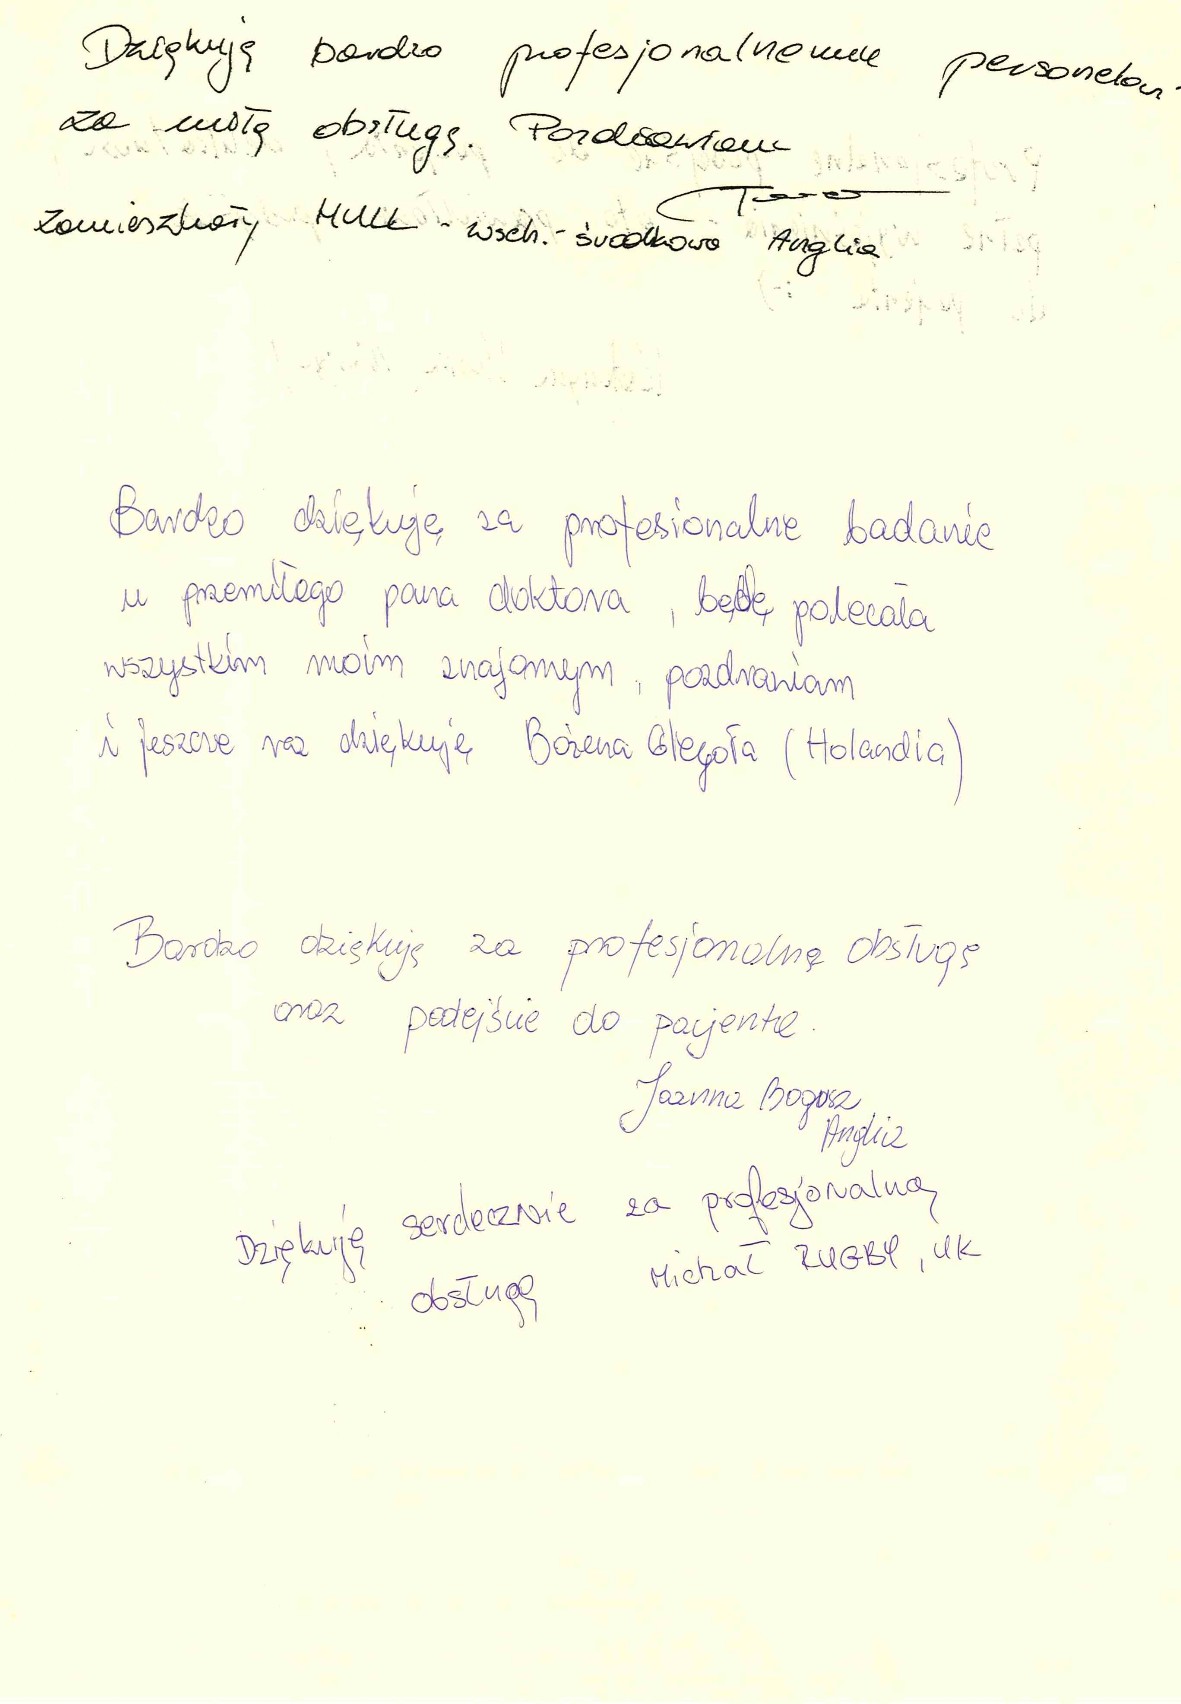 Dziękuję bardzo profesjonalnemu personelowi
za miłą obsługę. Pozdrawiam
zamieszkały HULL - wsch.-środkowa Anglia
Bardzo dziękuję za profesionalne badanie
u przemiłego pana doktora, będę polecała
wszystkim moim znajomym, pozdrawiam
i jeszcze raz dziękuję Bożena (Holandia)
Bardzo dziękuję za profesjonalną obsługę
oraz podejście do pacjenta.
Joanna Bogusz
Anglia
Dziękuję serdecznie za profesjonalną
obsługę Michał RUGBY, UK